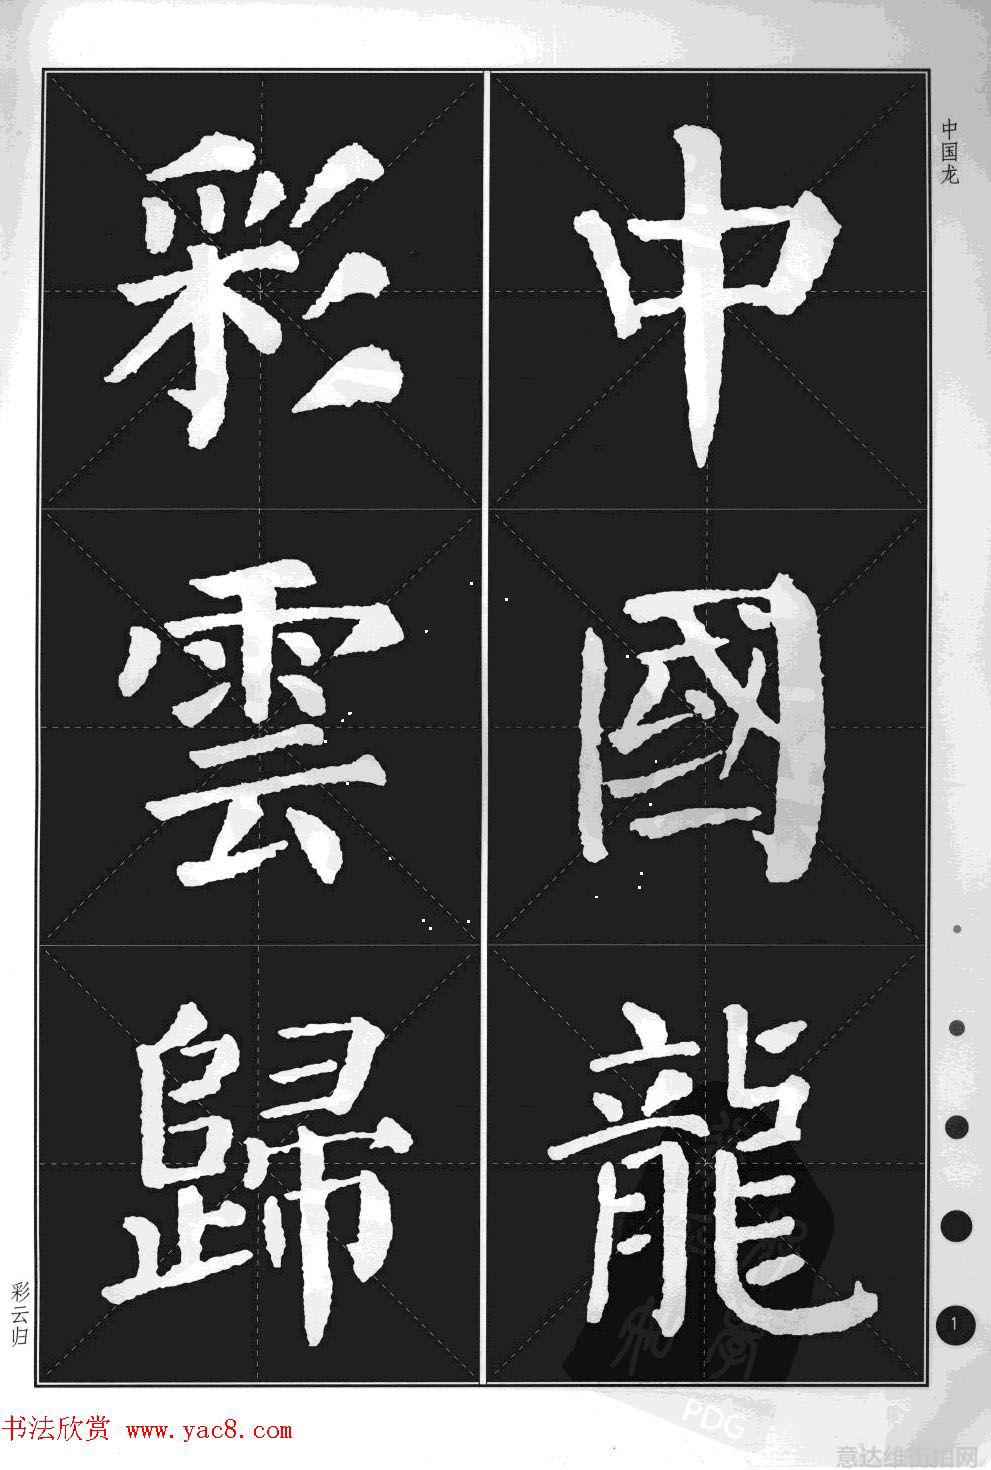 中國龍
彩雲歸
中国龙
彩云归
1
书法欣赏 www.yac8.com
PDG
意达维街拍网